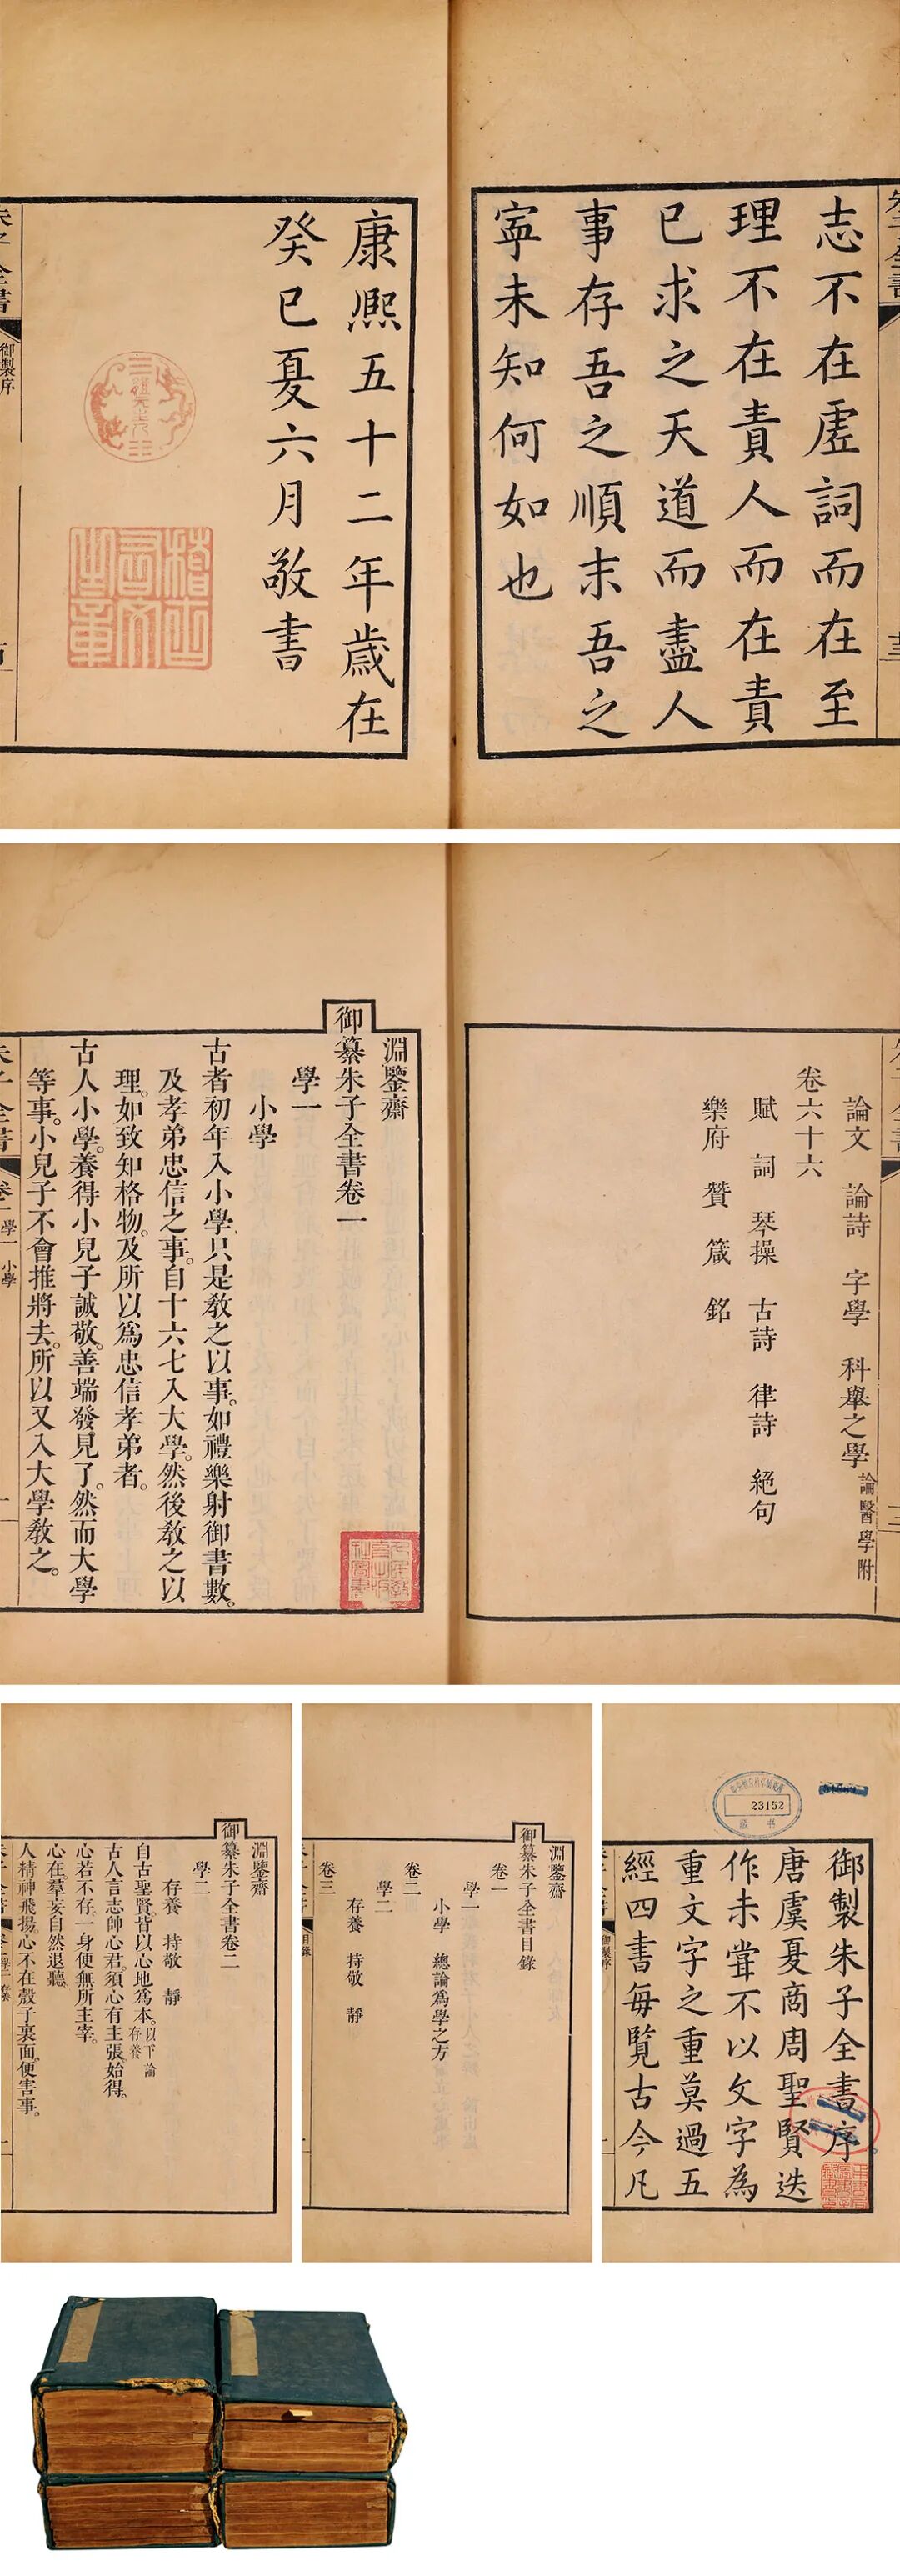 志不在虛詞而在至
理不在責人而在責
已求之天道而盡人
事存吾之順末吾之
寧未知何如也
康熙五十二年歲在
癸巳夏六月敬書
御製序
稽古右文之章
論文 論詩 字學 科舉之學論醫學附
卷六十六
賦 詞 琴操 古詩 律詩 絕句
樂府 贊 箴 銘
淵鑒齋
御纂朱子全書卷一
學一
小學
古者初年入小學只是教之以事如禮樂射御書數
及孝弟忠信之事自十六七入大學然後教之以
理如致知格物及所以爲忠信孝弟者
古人小學養得小兒子誠敬善端發見了然而大學
等事小兒子不會推將去所以又入大學教之
學一 小學
23152
藏書
御製朱子全書序
唐虞夏商周聖賢迭
作未嘗不以文字為
重文字之重莫過五
經四書每覽古今凡
御製序
淵鑒齋
御纂朱子全書目錄
卷一
學一
小學 總論爲學之方
卷二
學二
存養 持敬 靜
卷三
目錄
淵鑒齋
御纂朱子全書卷二
學二
存養 持敬 靜
自古聖賢皆以心地爲本以下論存養
古人言志帥心君須心有主張始得
心若不存一身便無所主宰
心在羣妄自然退聽
人精神飛揚心不在殼子裏面便害事